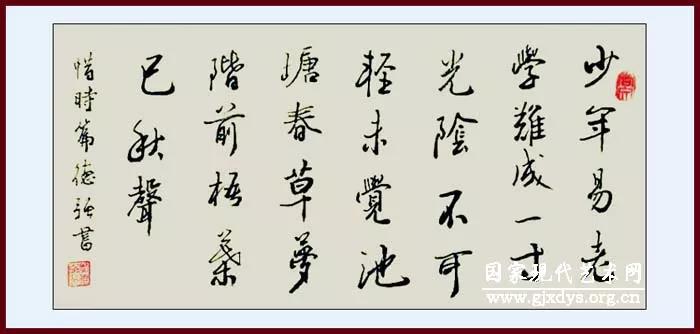 少年易老
學難成一寸
光陰不可
輕未覺池
塘春草夢
階前梧葉
已秋聲
惜時篇德强書
国家现代艺术网
www.gjxdys.org.cn